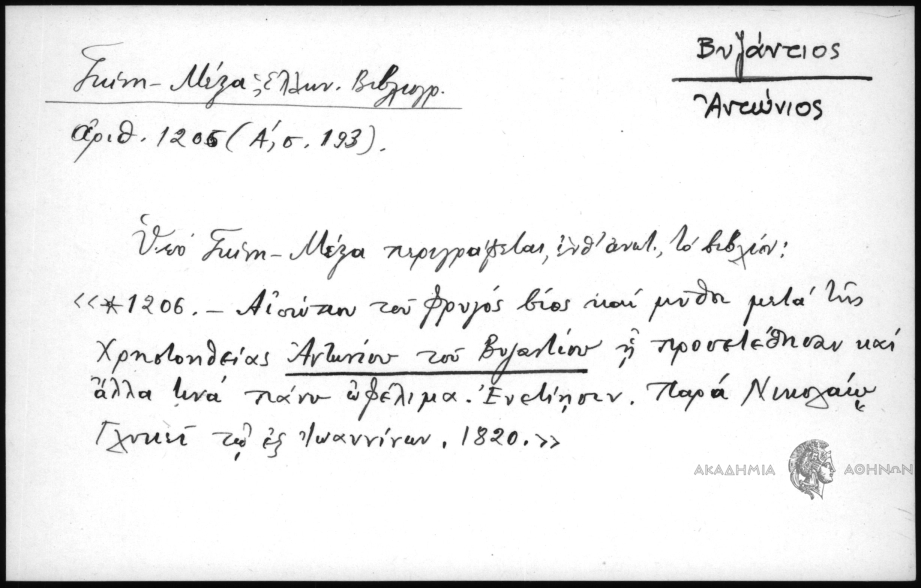 Βυζάντιος
Ἀντώνιος
Γκίνη - Μέξα Ἑλλην. Βιβλιογρ.
ἀριθ. 1206 (Α΄, σ. 193).
Ὑπό Γκίνη - Μέξα περιγράφεται, ἐνθ' ἀνωτ., τό βιβλίον:
«*1206. - Αἰσώπου τοῦ Φρυγός βίος καί μῦθοι μετά τῆς
Χρηστοηθείας Ἀντωνίου τοῦ Βυζαντίου ᾗ προσετέθησαν καί
ἄλλα τινά πάνυ ὠφέλιμα. Ἐνετίῃσιν. Παρά Νικολάῳ
Γλυκεῖ τῷ ἐξ Ἰωαννίνων. 1820.»
ΑΚΑΔΗΜΙΑ ΑΘΗΝΩΝ